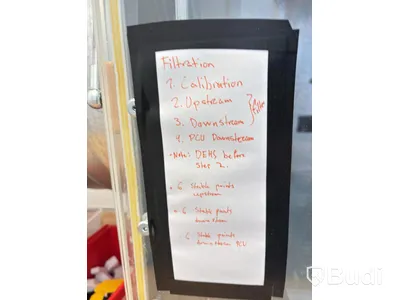 Filtration
1. Calibration
2. Upstream
3. Downstream
4. PCU Downstream
-Note: DEHS before
step 2.
• 6 Stable points
upstream
• 6 Stable points
downstream
6 Stable points
downstream PCU
Budi